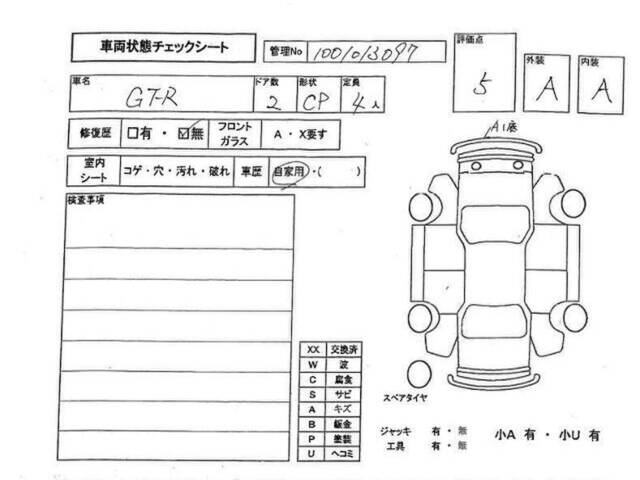 車両状態チェックシート 管理No 1001013097
評価点 5 外装 A 内装 A
車名 GT-R ドア数 2 形状 CP 定員 4人
修復歴 □有・☑無 フロントガラス A・X要す
室内シート コゲ・穴・汚れ・破れ 車歴 自家用・( )
A1底
検査事項
XX 交換済
W 波
C 腐食
S サビ
A キズ
B 鈑金
P 塗装
U ヘコミ
スペアタイヤ
ジャッキ 有・無
工具 有・無
小A 有・小U 有